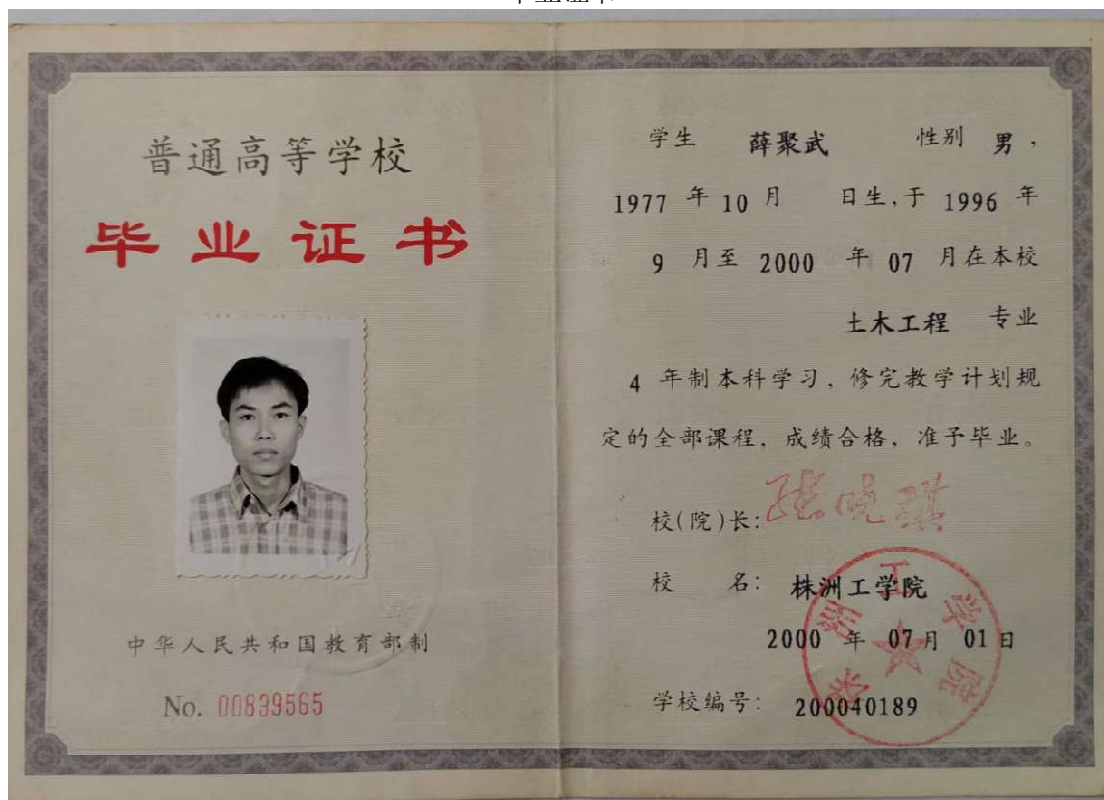 普通高等学校
毕业证书
中华人民共和国教育部制
No. 00839565
学生 薛聚武 性别 男，
1977 年 10 月 日生，于 1996 年
9 月至 2000 年 07 月在本校
土木工程 专业
4 年制本科学习，修完教学计划规
定的全部课程，成绩合格，准予毕业。
校(院)长: 张晓琪
校 名: 株洲工学院
2000 年 07 月 01 日
学校编号: 200040189
株洲工学院